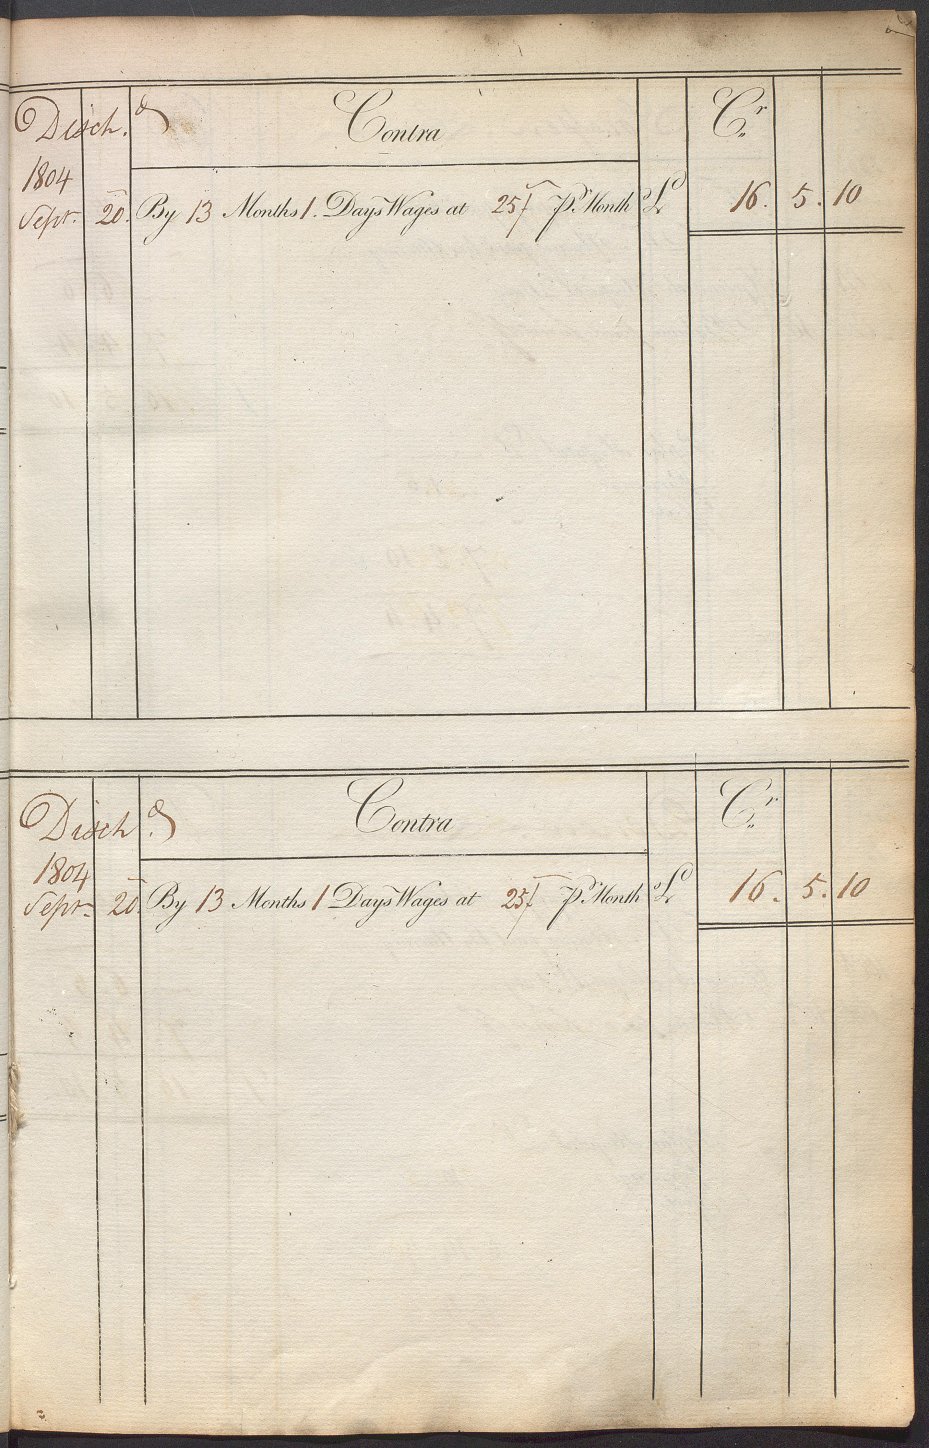 Disch.d Contra Cr.
1804
Sept. 20. By 13 Months 1. Days Wages at 25/ Pr. Month £ 16. 5. 10
Disch.d Contra Cr.
1804
Sept. 20 By 13 Months 1 Days Wages at 25/ Pr. Month £ 16. 5. 10